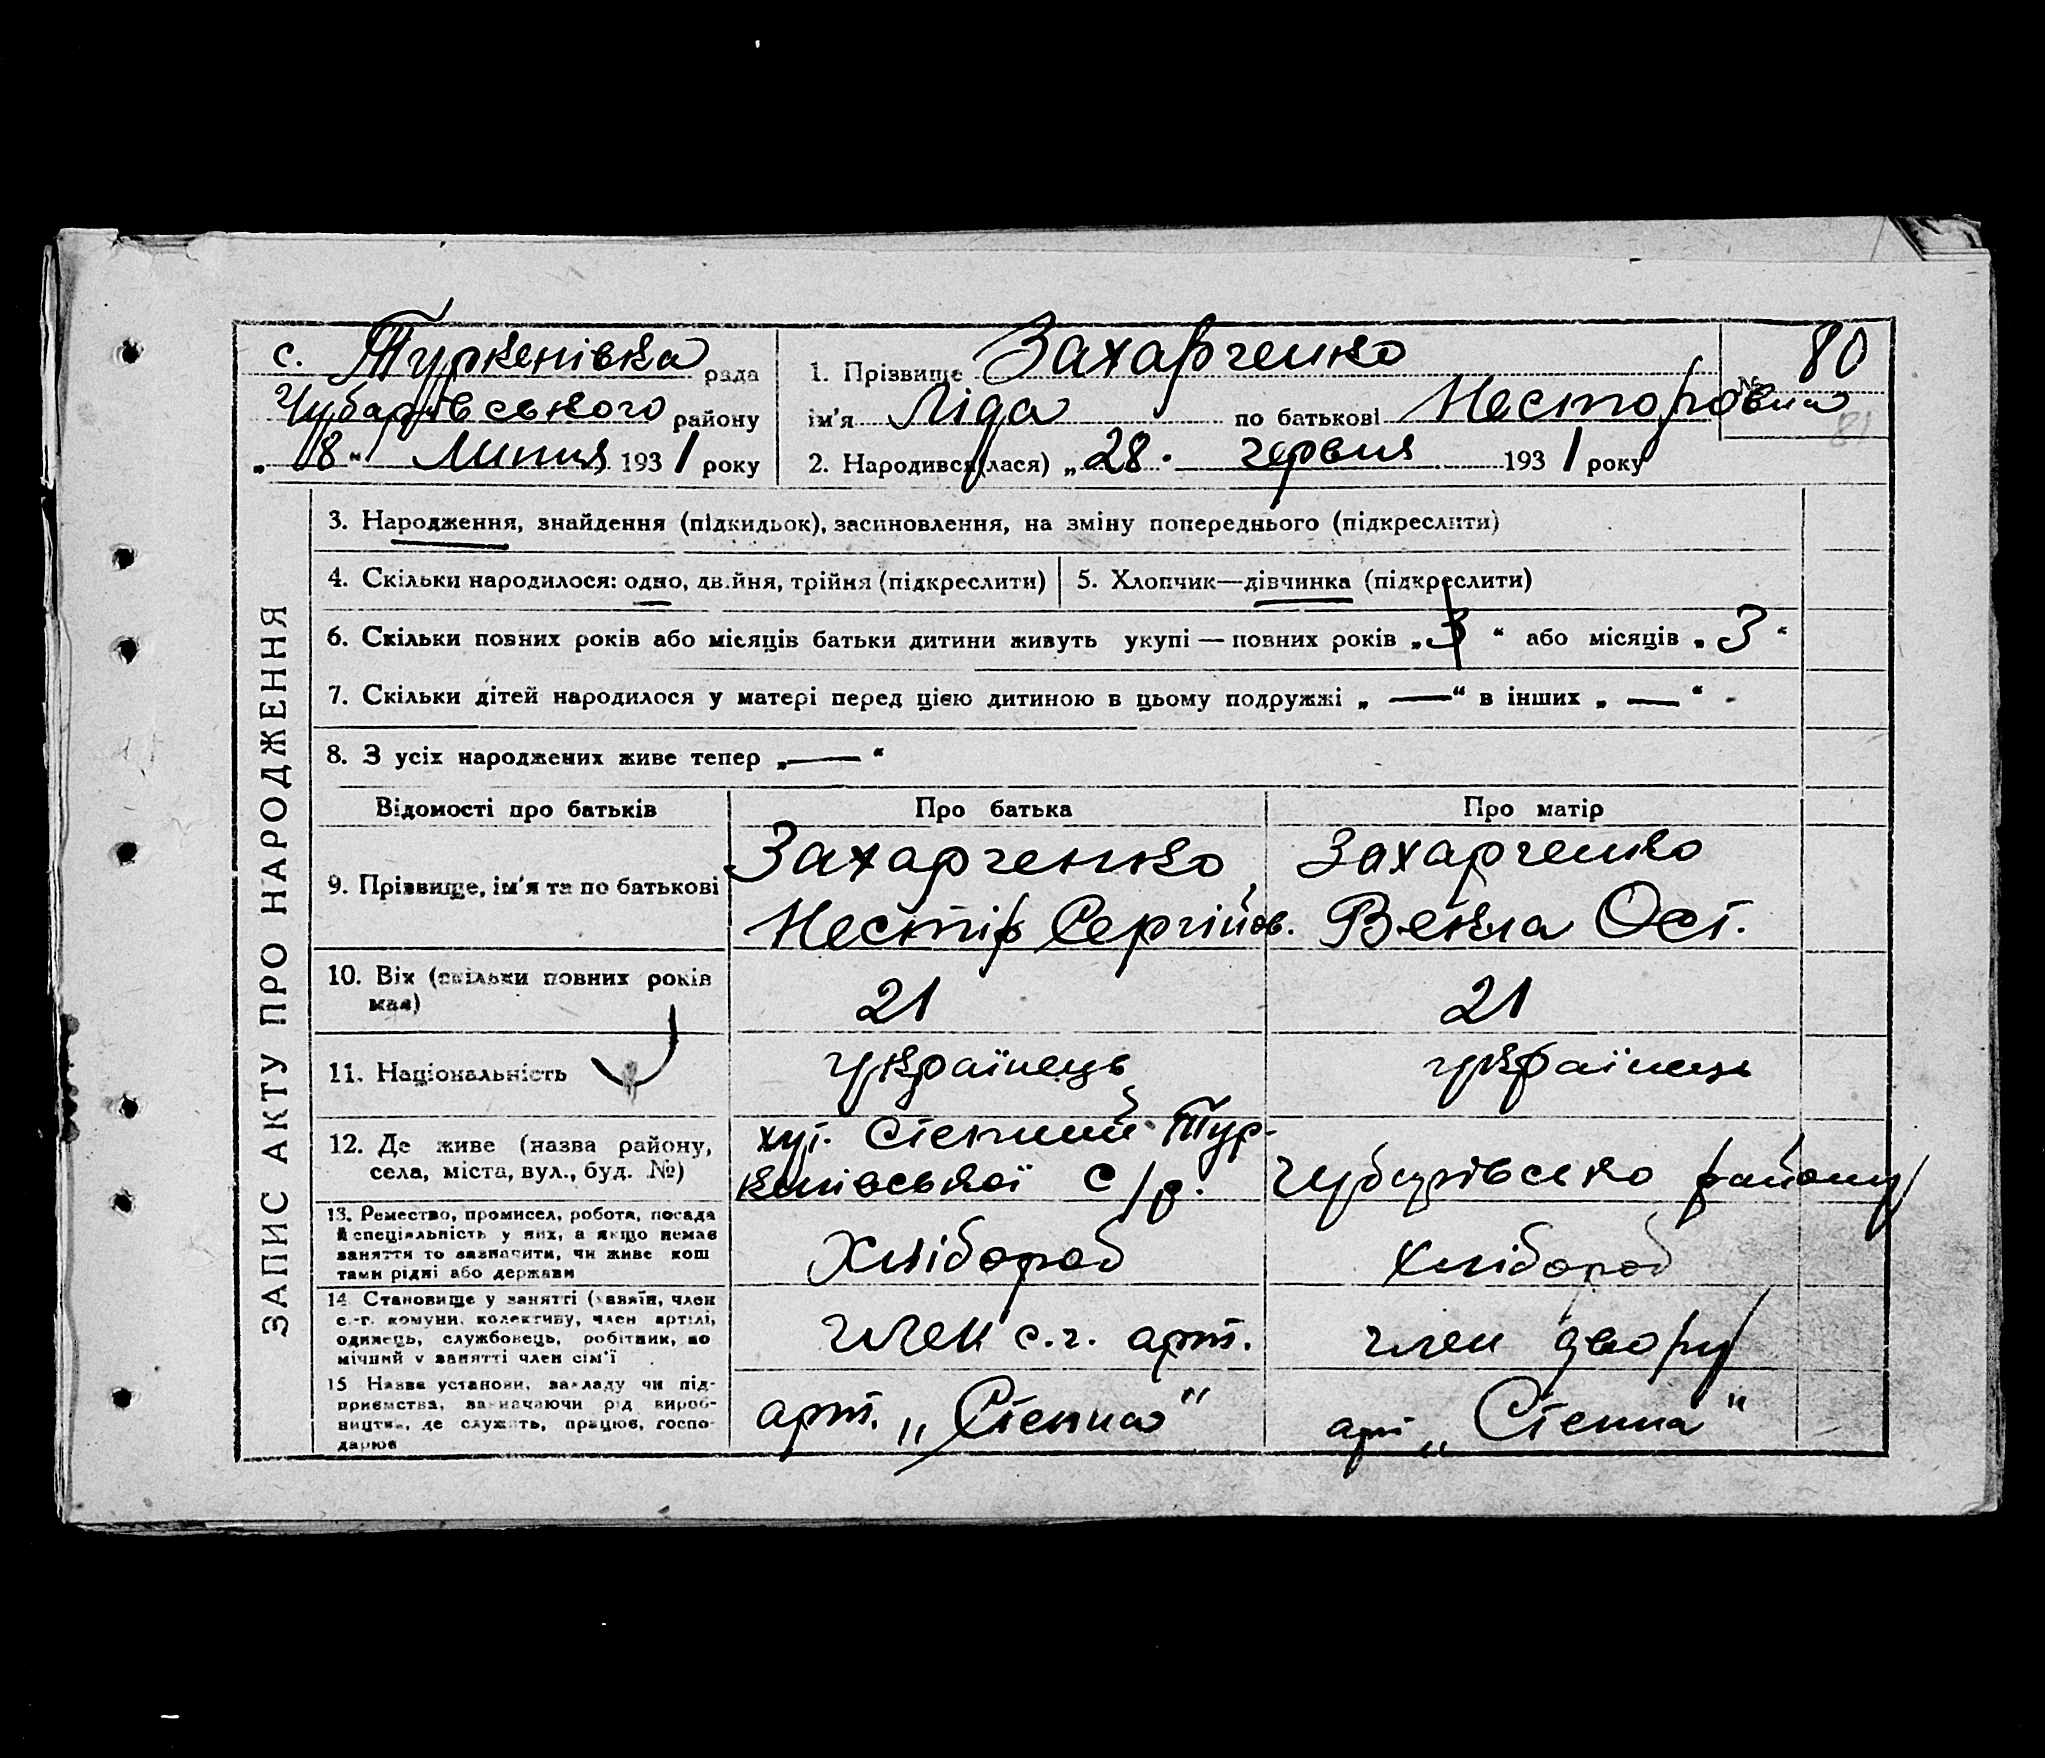 с. Туркенівка рада
Чубарівського району
„ 18 “ Липня 1931 року
1. Прізвище Захарченко
ім'я Ліда по батькові Несторовна
2. Народився(лася) „ 28 . червня 1931 року
№ 80
81
ЗАПИС АКТУ ПРО НАРОДЖЕННЯ
3. Народження, знайдення (підкидьок), засиновлення, на зміну попереднього (підкреслити)
4. Скільки народилося: одно, двійня, трійня (підкреслити)
5. Хлопчик—дівчинка (підкреслити)
6. Скільки повних років або місяців батьки дитини живуть укупі — повних років „ 3 “ або місяців „ 3 “
7. Скільки дітей народилося у матері перед цією дитиною в цьому подружжі „ — “ в інших „ — “
8. З усіх народжених живе тепер „ — “
Відомості про батьків
Про батька
Про матір
9. Прізвище, ім'я та по батькові
Захарченко
Нестір Сергійов.
Захарченко
Векла Ост.
10. Вік (скільки повних років
має)
21
21
11. Національність
українець
українець
12. Де живе (назва району,
села, міста, вул., буд. №)
хут. Степний Тур-
кенівської с/р.
Чубарівсько району
13. Ремество, промисел, робота, посада
й спеціяльність у них, а якщо немає
заняття то зазначити, чи живе кош
тами рідні або держави
Хлібороб
хлібороб
14. Становище у занятті (хазяїн, член
с.-г. комуни, колективу, член артілі,
одинець, службовець, робітник, по
мічний у занятті член сім'ї
член с.г. арт.
член двору
15 Назва установи, закладу чи під-
приємства, зазначаючи рід вироб-
ництва, де служить, працює, госпо-
дарює
арт. „ Степна “
арт „ Степна “